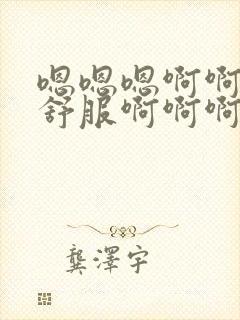 嗯嗯嗯啊啊
舒服啊啊啊
龔澤宇